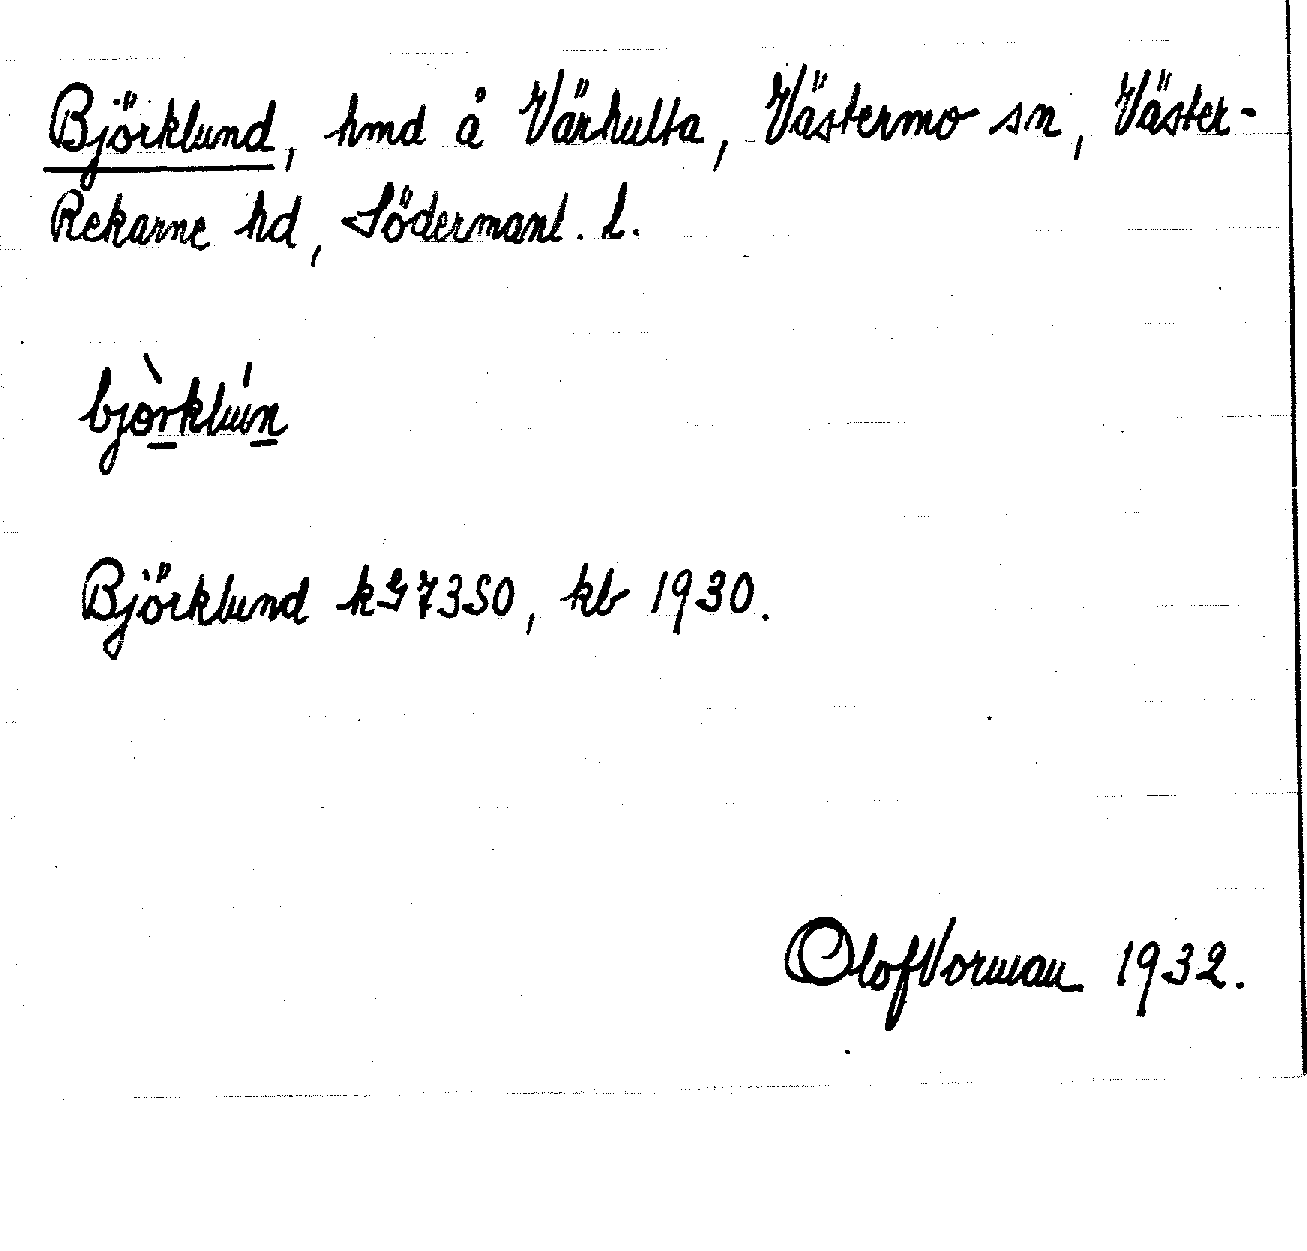 Björklund, hmd å Värhulta, Västermo sn, Väster-
Rekarne hd, Södermanl. l.
bjòrklún
Björklund kG7350, kb 1930.
Olof Vorman 1932.